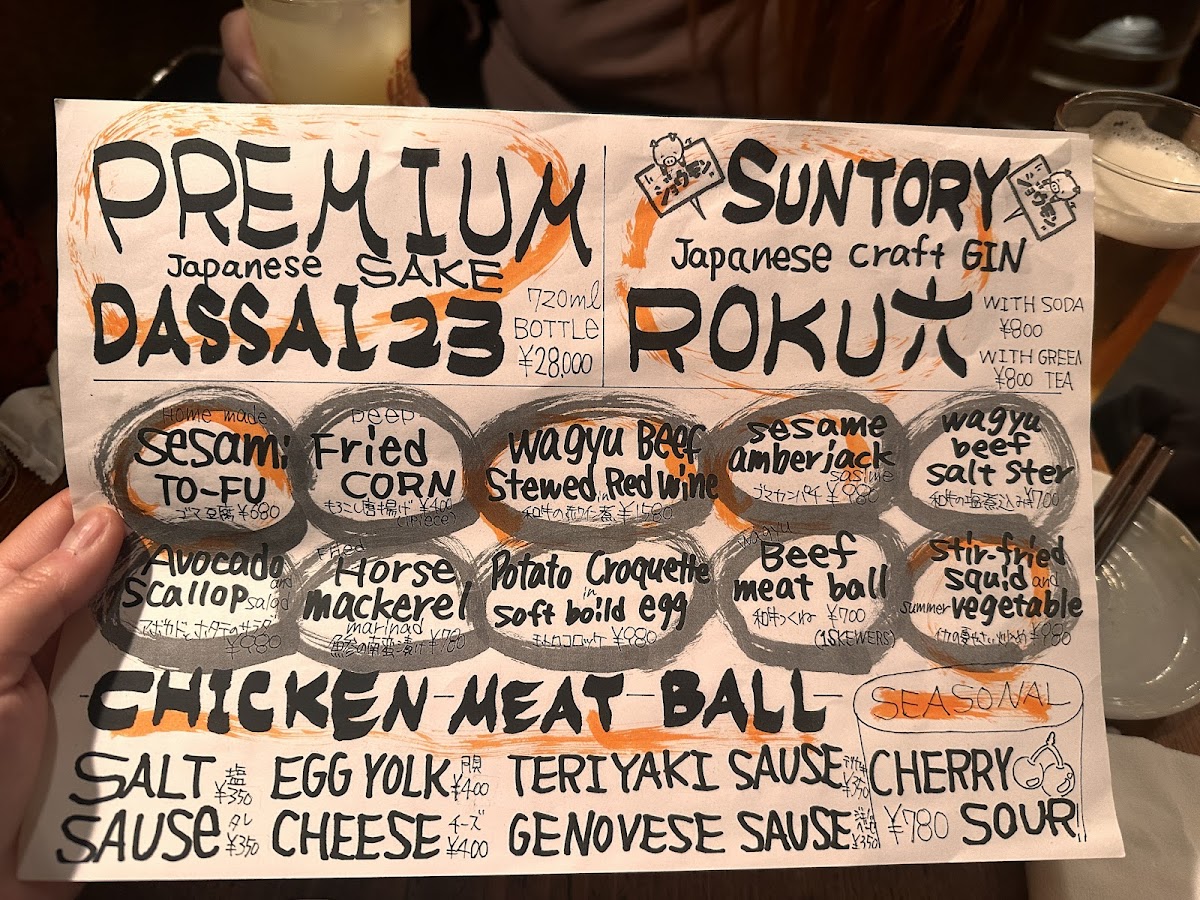 PREMIUM
Japanese SAKE
DASSAI 23
720ml
BOTTLE
¥28,000
ショウモン
SUNTORY
Japanese craft GIN
ROKU六
WITH SODA
¥800
WITH GREEN
¥800 TEA
Home made
Sesami
TO-FU
ゴマ豆腐 ¥680
DEEP
Fried
CORN
もろこし唐揚げ ¥400
(1PIECE)
wagyu Beef
Stewed in Red wine
¥1580
sesame
amberjack
sasime
ゴマカンパチ ¥980
wagyu
beef
salt ster
和牛の塩煮込み ¥700
Avocado
and
scallop salad
アボカドとホタテのサラダ
¥980
Fried
Horse
mackerel
marinad
南蛮漬け ¥780
Potato Croquette
in
soft boild egg
¥980
wagyu
Beef
meat ball
和牛つくね ¥700
(1SKEWERS)
Stir-fried
squid and
summer vegetable
¥980
CHICKEN-MEAT BALL
SALT 塩 ¥350
EGG YOLK ¥400
TERIYAKI SAUSE ¥350
SAUSE タレ ¥350
CHEESE チーズ ¥400
GENOVESE SAUSE ¥350
SEASONAL
CHERRY
¥780 SOUR!!